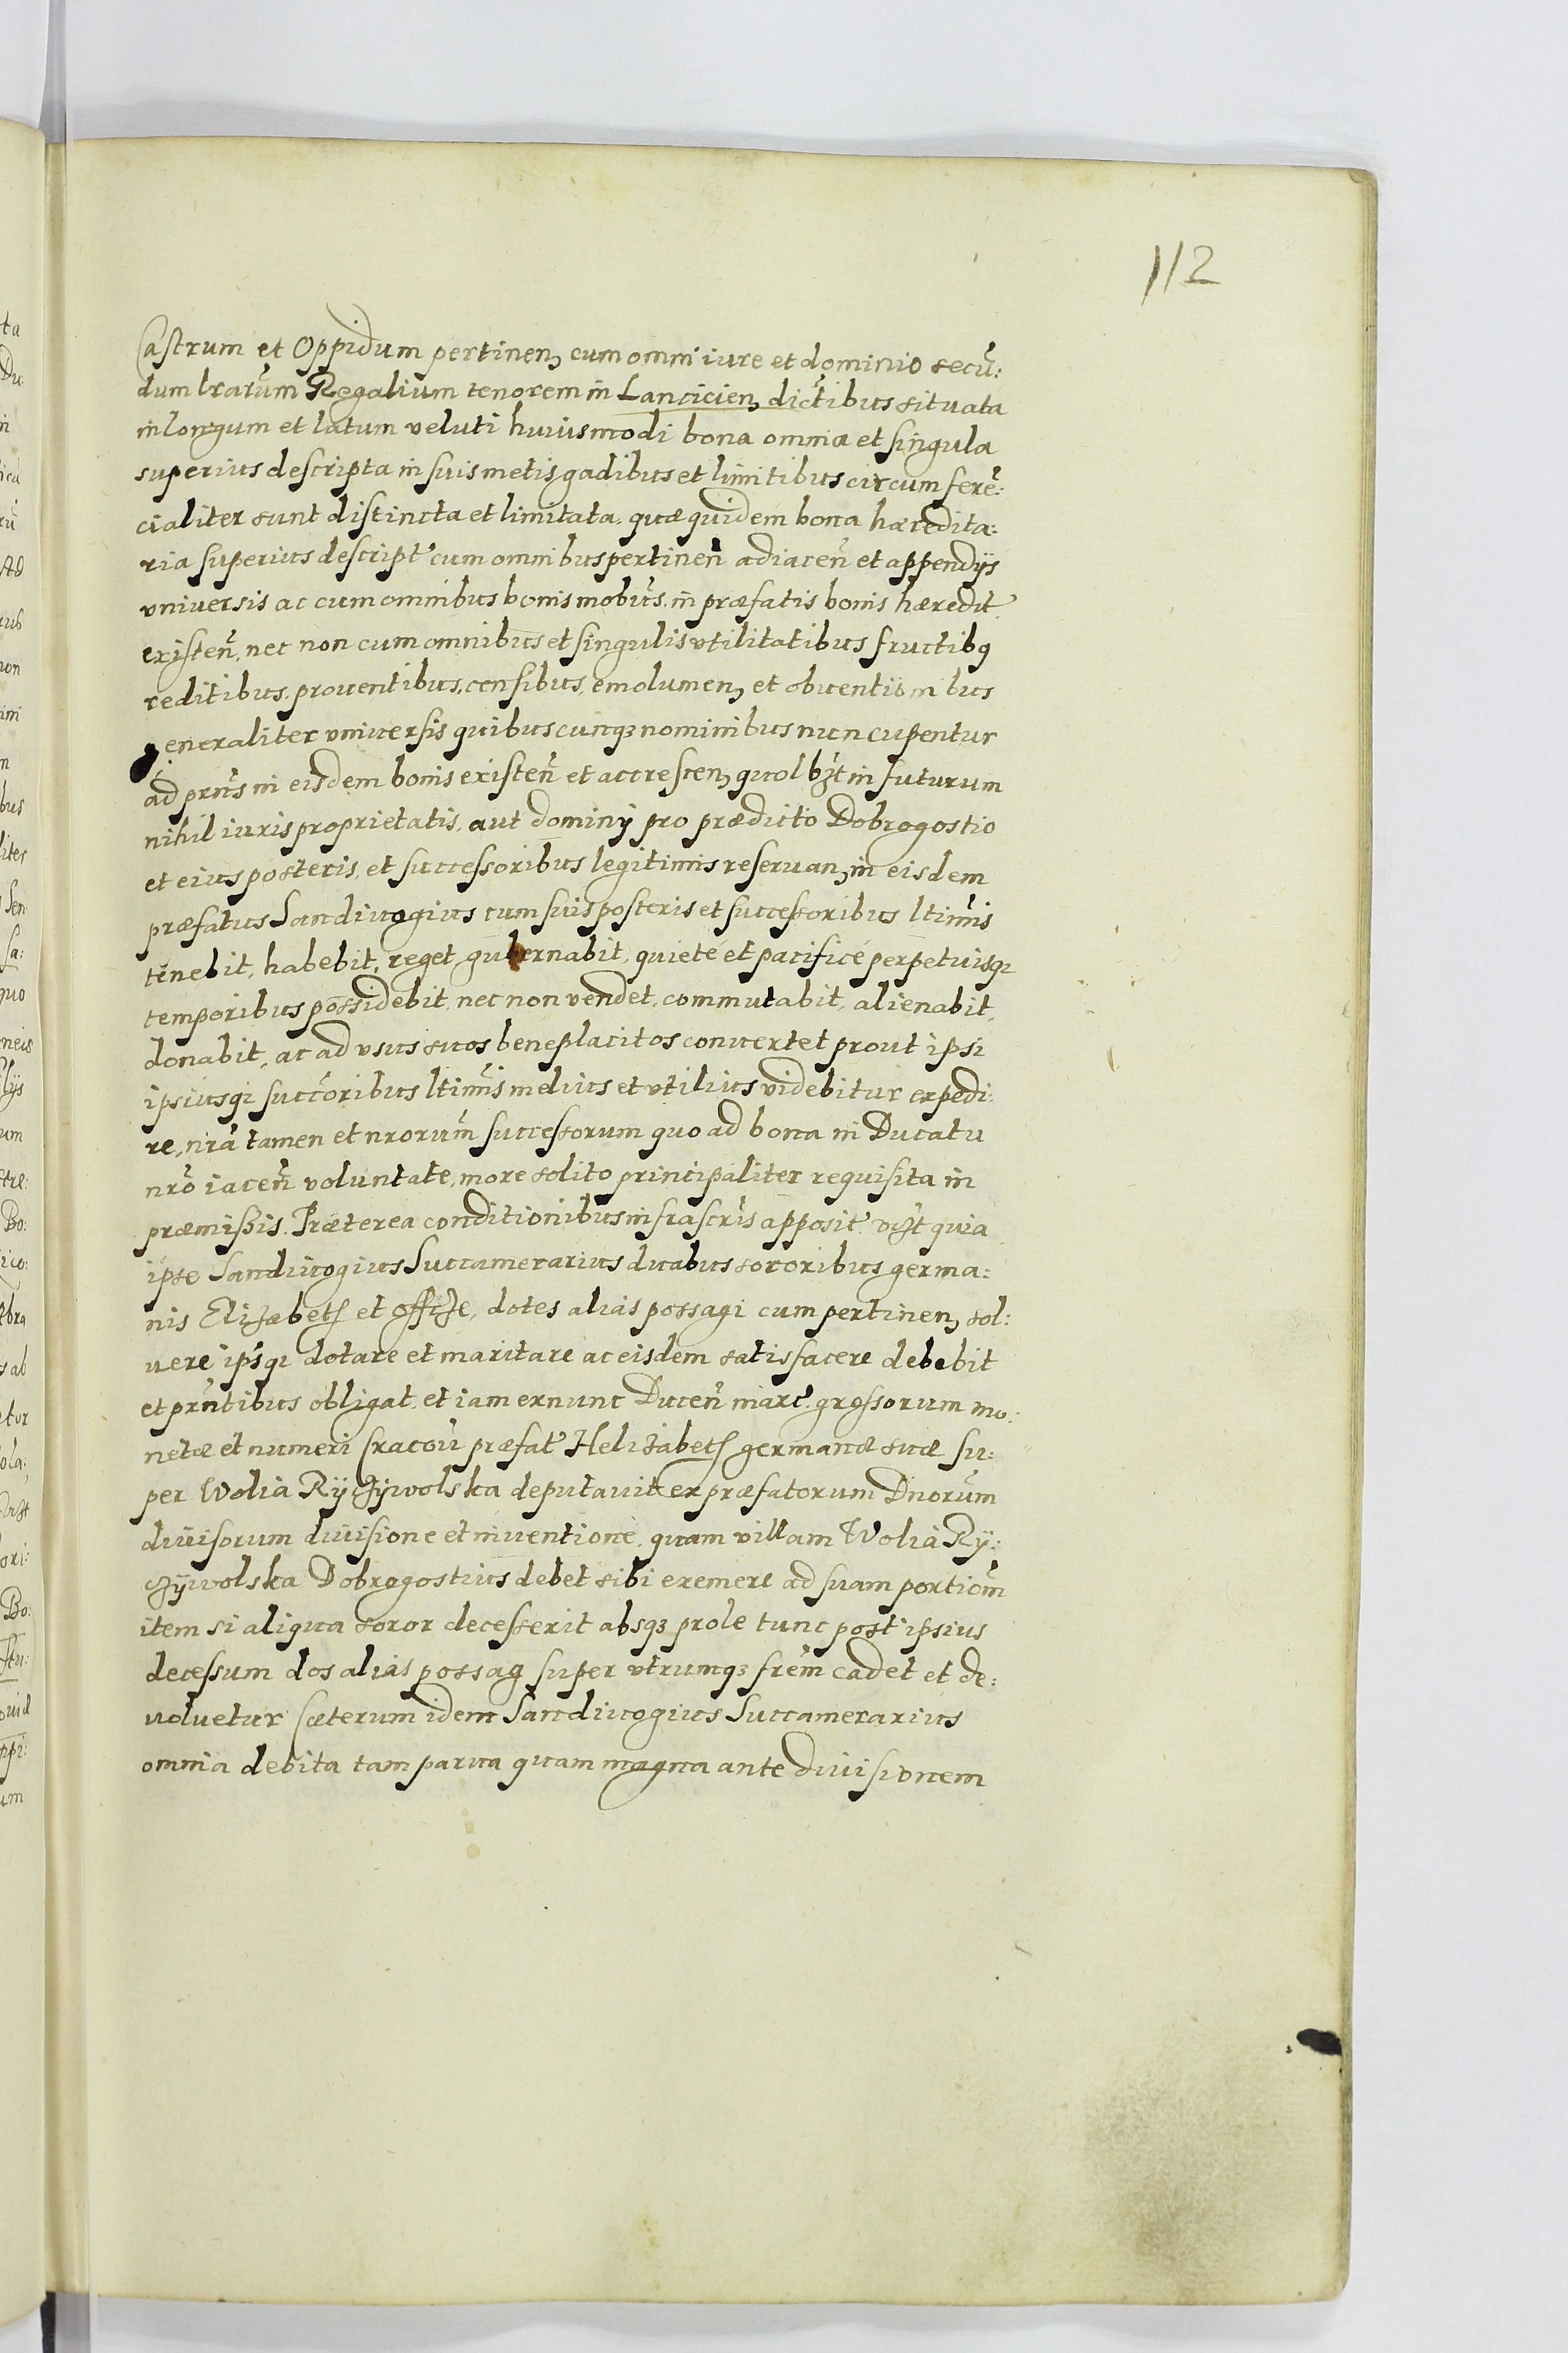 112
Castrum et Oppidum pertineñ cum omni iure et dominio secũ:
dum lrarum Regalium tenorem in Lancicieñ dictibus situata
in longum et latum veluti huiusmodi bona omnia et singula
superius descripta in suis metis gadibus et limitibus circumferẽ:
cialiter sunt distincta et limitata. quæ quidem bona hæredita:
ria superius descript cum omnibus pertineñ adiaceñ et appendijs
vniuersis ac cum omnibus bonis mobus. in præfatis bonis hæredit
existeñ, nec non cum omnibus et singulis vtilitatibus fructibq
reditibus, prouentibus, censibus, emolumeñ et obuentionibus
generaliter vniuersis quibuscunqz nominibus nuncupentur
ad prñs in eisdem bonis existeñ et accresceñ quolbzt in futurum
nihil iuris proprietatis, aut dominij pro prædicto Dobrogostio
et eius posteris, et successoribus legitimis reseruañ, in eisdem
præfatus Sandiuogius cum suis posteris et successoribus ltimis
tenebit, habebit, reget gubernabit, quietè et pacificè perpetuisqz
temporibus possidebit, nec non vendet, commutabit, alienabit,
donabit, ac ad vsus suos beneplacitos conuertet prout ipsi
ipsiusqz succoribus ltimis melius et vtilius videbitur expedi:
re, nra tamen et nrorum successorum quo ad bona in Ducatu
nro iaceñ voluntate, more solito principaliter requisita in
præmissis. Præterea conditionibus infrascris apposit vizt quia
ipse Sandiuogius Succamerarius duabus sororibus germa:
nis Elizabeth et Offize, dotes alias possagi cum pertineñ sol:
uere ipsqz dotare et maritare ac eisdem satisfacere debebit
et prntibus obligat. et iam exnunc Duceñ marc. grossorum mo:
netæ et numeri Cracoũ præfat Helizabeth germanæ suæ su:
per Wolia Ryczÿwolska deputauit ex præfatorum Dnorum
diuisorum diuisione et inuentione, quam villam Wolia Rÿ:
czÿwolska Dobrogostius debet sibi exemere ad suam portiom
item si aliqua soror decesserit absqz prole tunc post ipsius
decessum dos alias possag super vtrumqz frem cadet et de:
uoluetur Cæterum idem Sandiuogius Succamerarius
omnia debita tam parua quam magna ante diuisionem